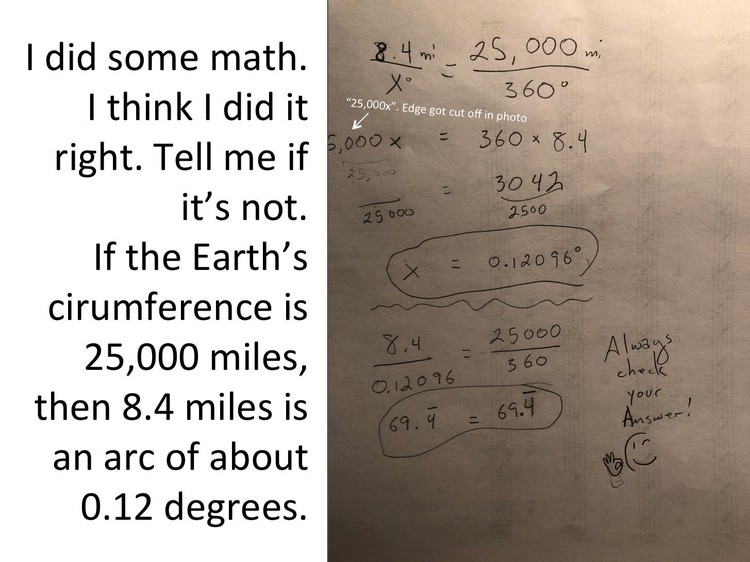 I did some math.
I think I did it
right. Tell me if
it’s not.
If the Earth’s
cirumference is
25,000 miles,
then 8.4 miles is
an arc of about
0.12 degrees.
8.4 mi = 25,000 mi
x° 360°
“25,000x”. Edge got cut off in photo
5,000 x = 360 × 8.4
25,000
= 3042
25000 2500
x = 0.12096°
8.4 = 25000
0.12096 360
69.4̅ = 69.4̅
Always
check
your
Answer!